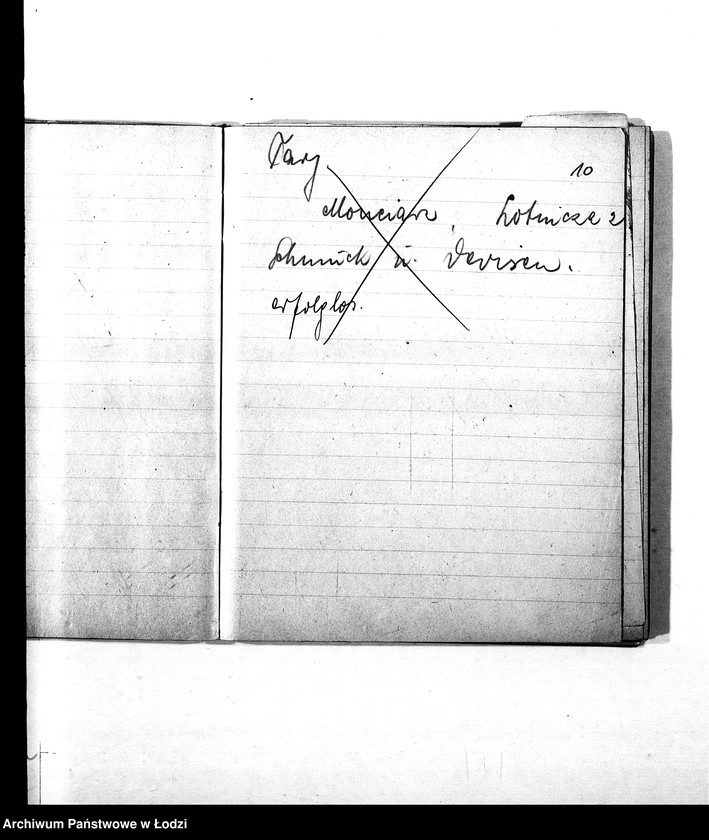 10
Mouciarz, Lotnicza 2
Schmuck u. Devisen.
erfolglos.
Archiwum Państwowe w Łodzi